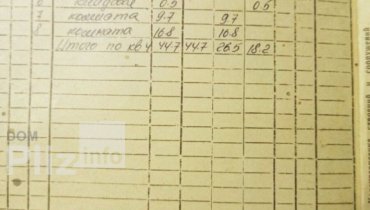 6 кладовая 0.5 0.5
7 комната 9.7 9.7
8 комната 16.8 16.8
Итого по кв 4 44.7 44.7 26.5 18.2
ДОМ
Pliz
info